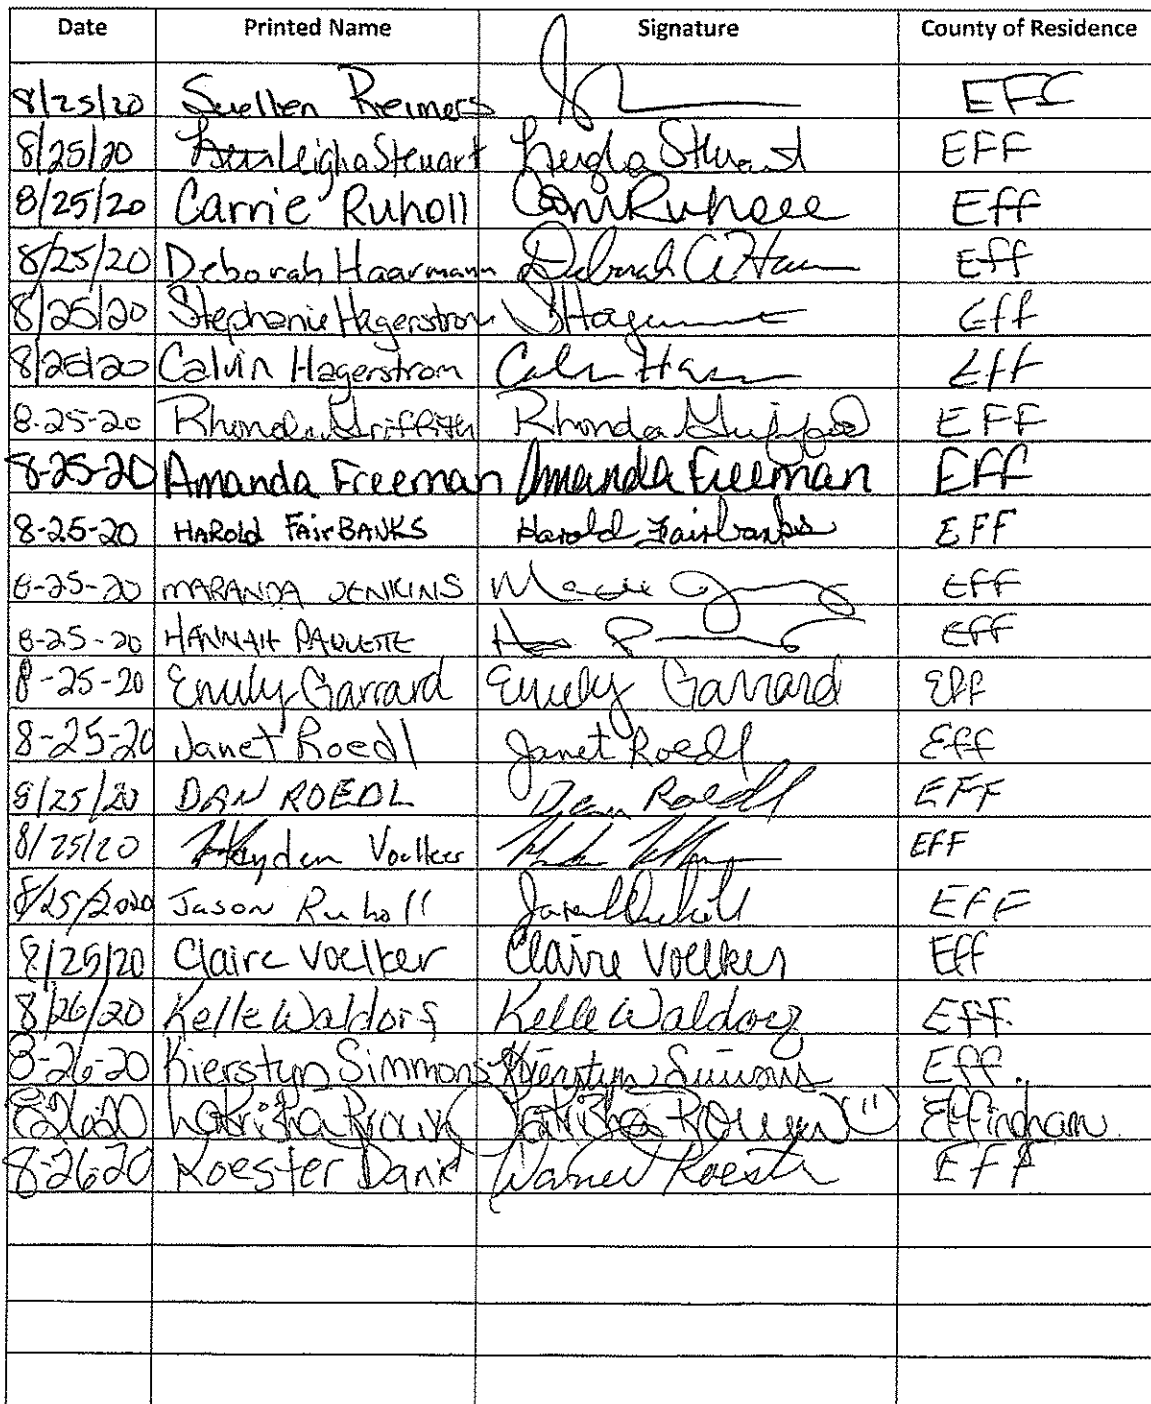 Date Printed Name Signature County of Residence
8/25/20 Suellen Reimers EFF
8/25/20 Leigha Stewart Leigha Stewart EFF
8/25/20 Carrie Ruholl Carrie Ruholl Eff
8/25/20 Deborah Haarmann Deborah A Haar Eff
8/25/20 Stephanie Hagerstrom SHage Eff
8/25/20 Calvin Hagerstrom Calvin Hag Eff
8-25-20 Rhonda Griffith Rhonda Griffith EFF
8-25-20 Amanda Freeman Amanda Freeman Eff
8-25-20 HAROLD FAIRBANKS Harold Fairbanks EFF
8-25-20 MARANDA JENKINS EFF
8-25-20 HANNAH PAQUETTE EFF
8-25-20 Emily Garrard Emily Garrard Eff
8-25-20 Janet Roedl Janet Roedl Eff
8/25/20 DAN ROEDL Dan Roedl EFF
8/25/20 Hayden Voelker EFF
8/25/2020 Jason Ruholl Jason Ruholl EFF
8/25/20 Claire Voelker Claire Voelker Eff
8/26/20 Kelle Waldorf Kelle Waldorf Eff.
8-26-20 Kierstyn Simmons Kierstyn Simmons Eff.
8-26-20 Effingham
8-26-20 Koester Daniel Daniel Koester Eff